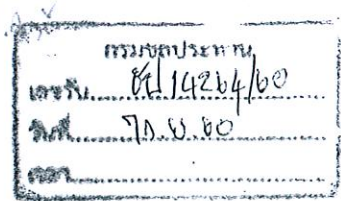 กรมชลประทาน
เลขรับ..... ชป 14264/60
วันที่..... 7 ก.ย. 60
เวลา.....